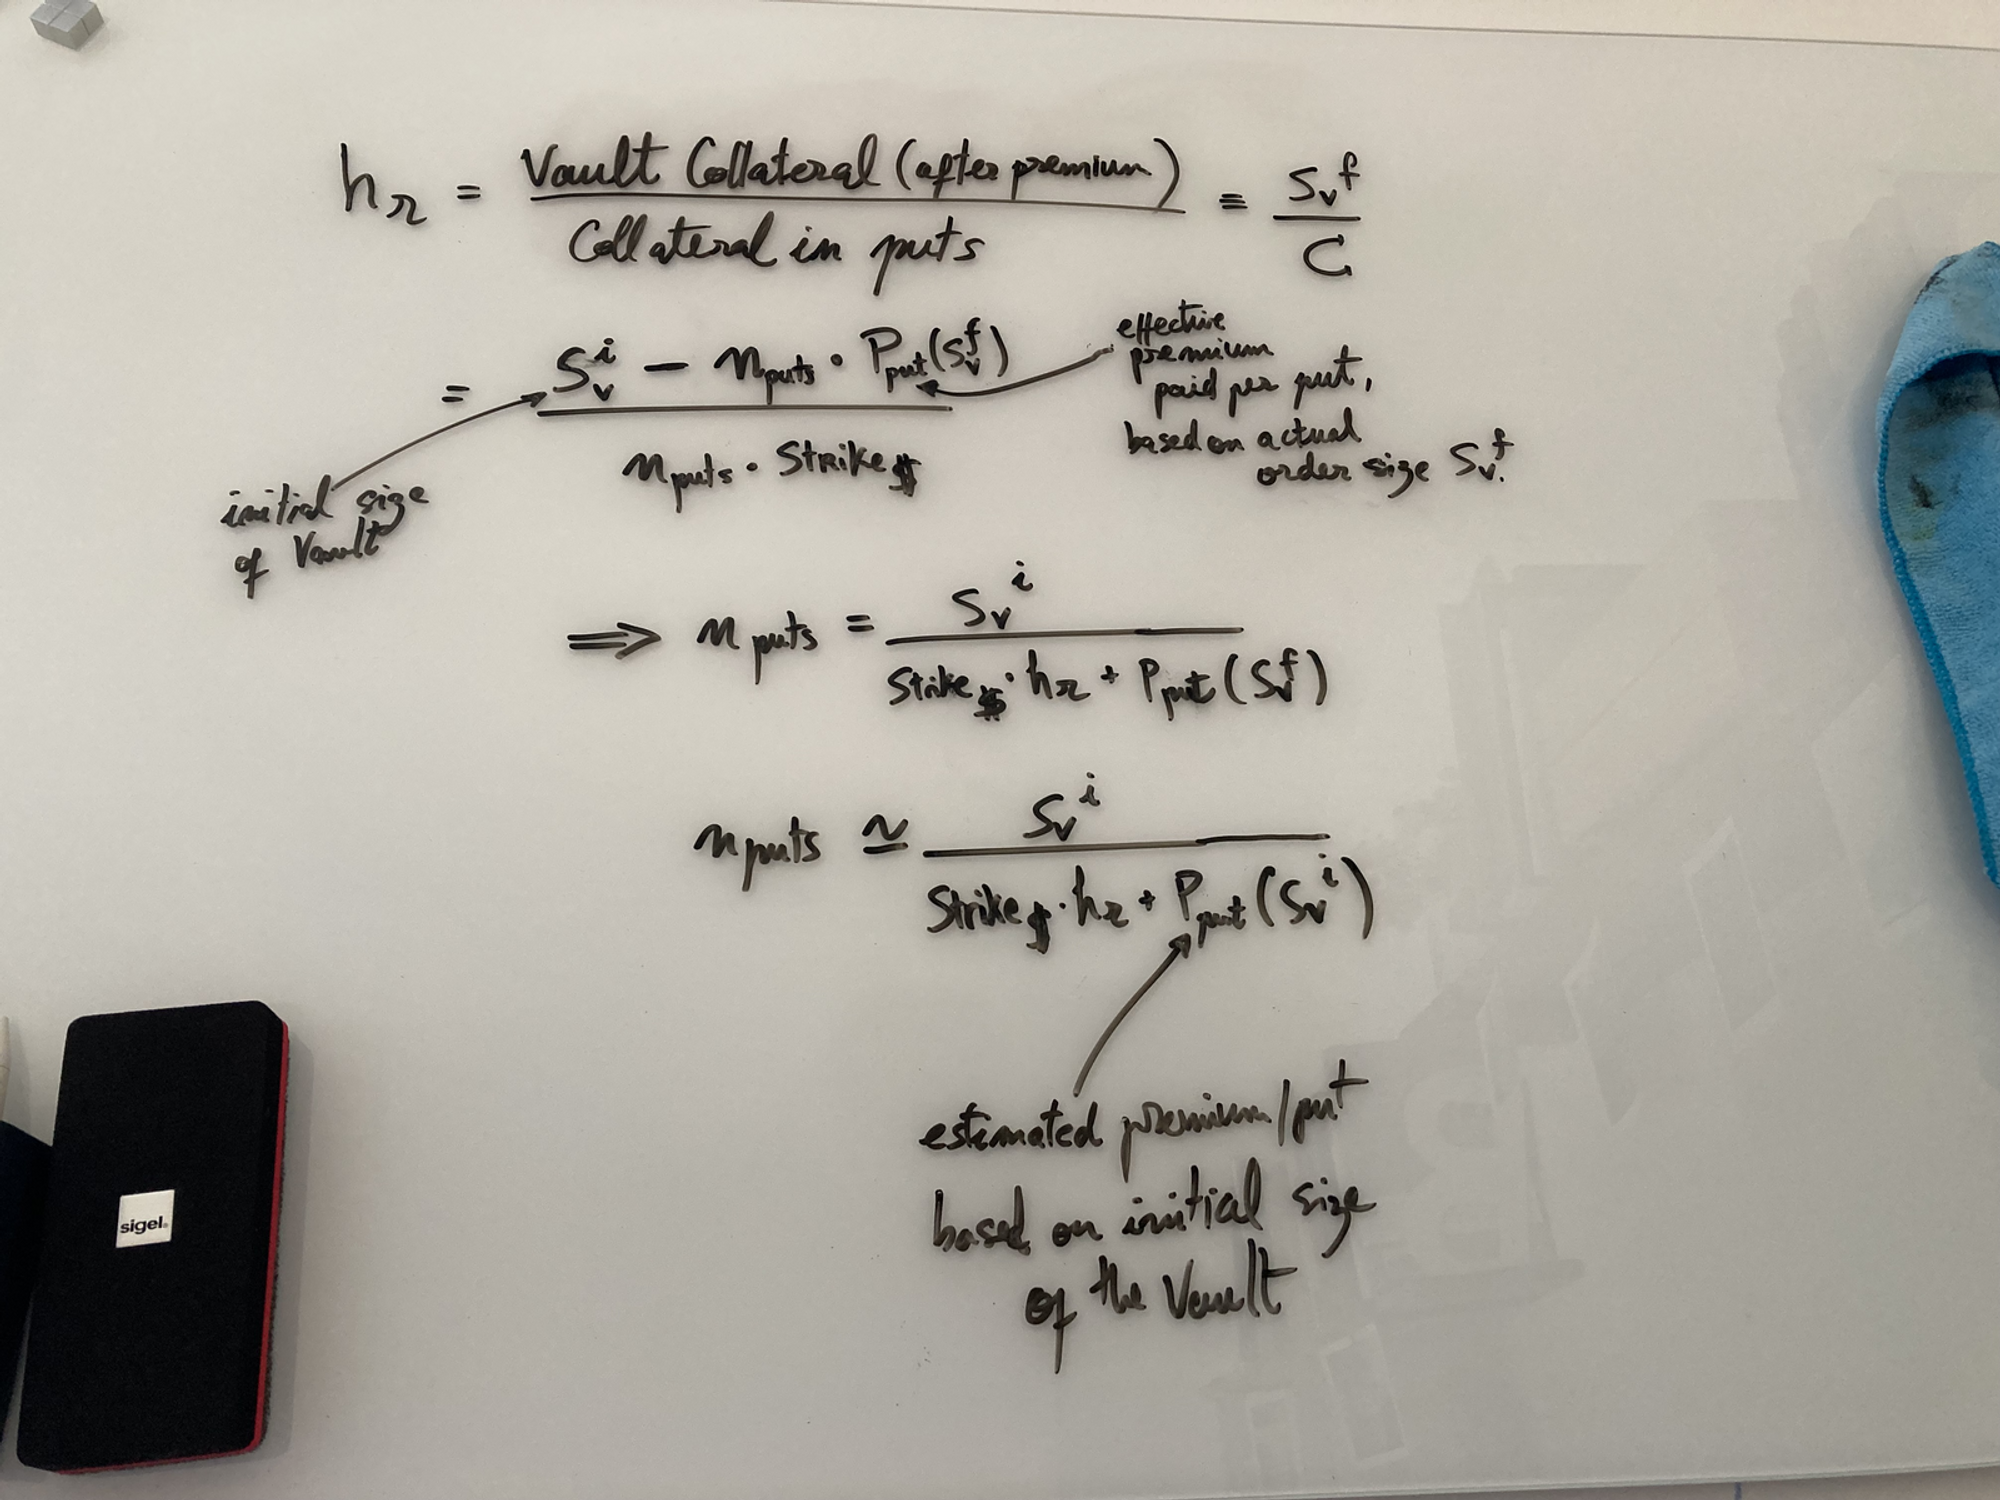 h_r = Vault Collateral (after premium) / Collateral in puts ≡ S_v^f / C
= S_v^i − n_puts · P_put(S_v^f) / n_puts · Strike_$
effective
premium
paid per put,
based on actual
order size S_v^f.
initial size
of Vault
⟹ n_puts = S_v^i / Strike_$ · h_r + P_put(S_v^f)
n_puts ≃ S_v^i / Strike_$ · h_r + P_put(S_v^i)
estimated premium/put
based on initial size
of the Vault
sigel.